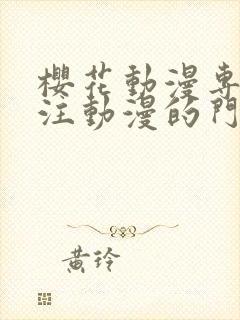 櫻花動漫專
注動漫的門
黃玲